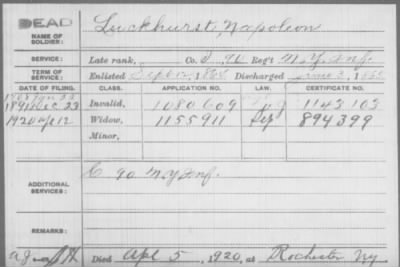 DEAD
NAME OF SOLDIER: Luckhurst, Napoleon
SERVICE: Late rank, Co. Reg't N.Y. Inf.
TERM OF SERVICE: Enlisted Sept 12, 1864 Discharged June 3, 1865
DATE OF FILING. CLASS. APPLICATION NO. LAW. CERTIFICATE NO.
1891 Dec 23 Invalid, 1080609 1143103
1920 Ap 12 Widow, 1155911 894399
Minor,
ADDITIONAL SERVICES: C 90 N.Y. Inf.
REMARKS:
Died Apl 5, 1920, at Rochester NY